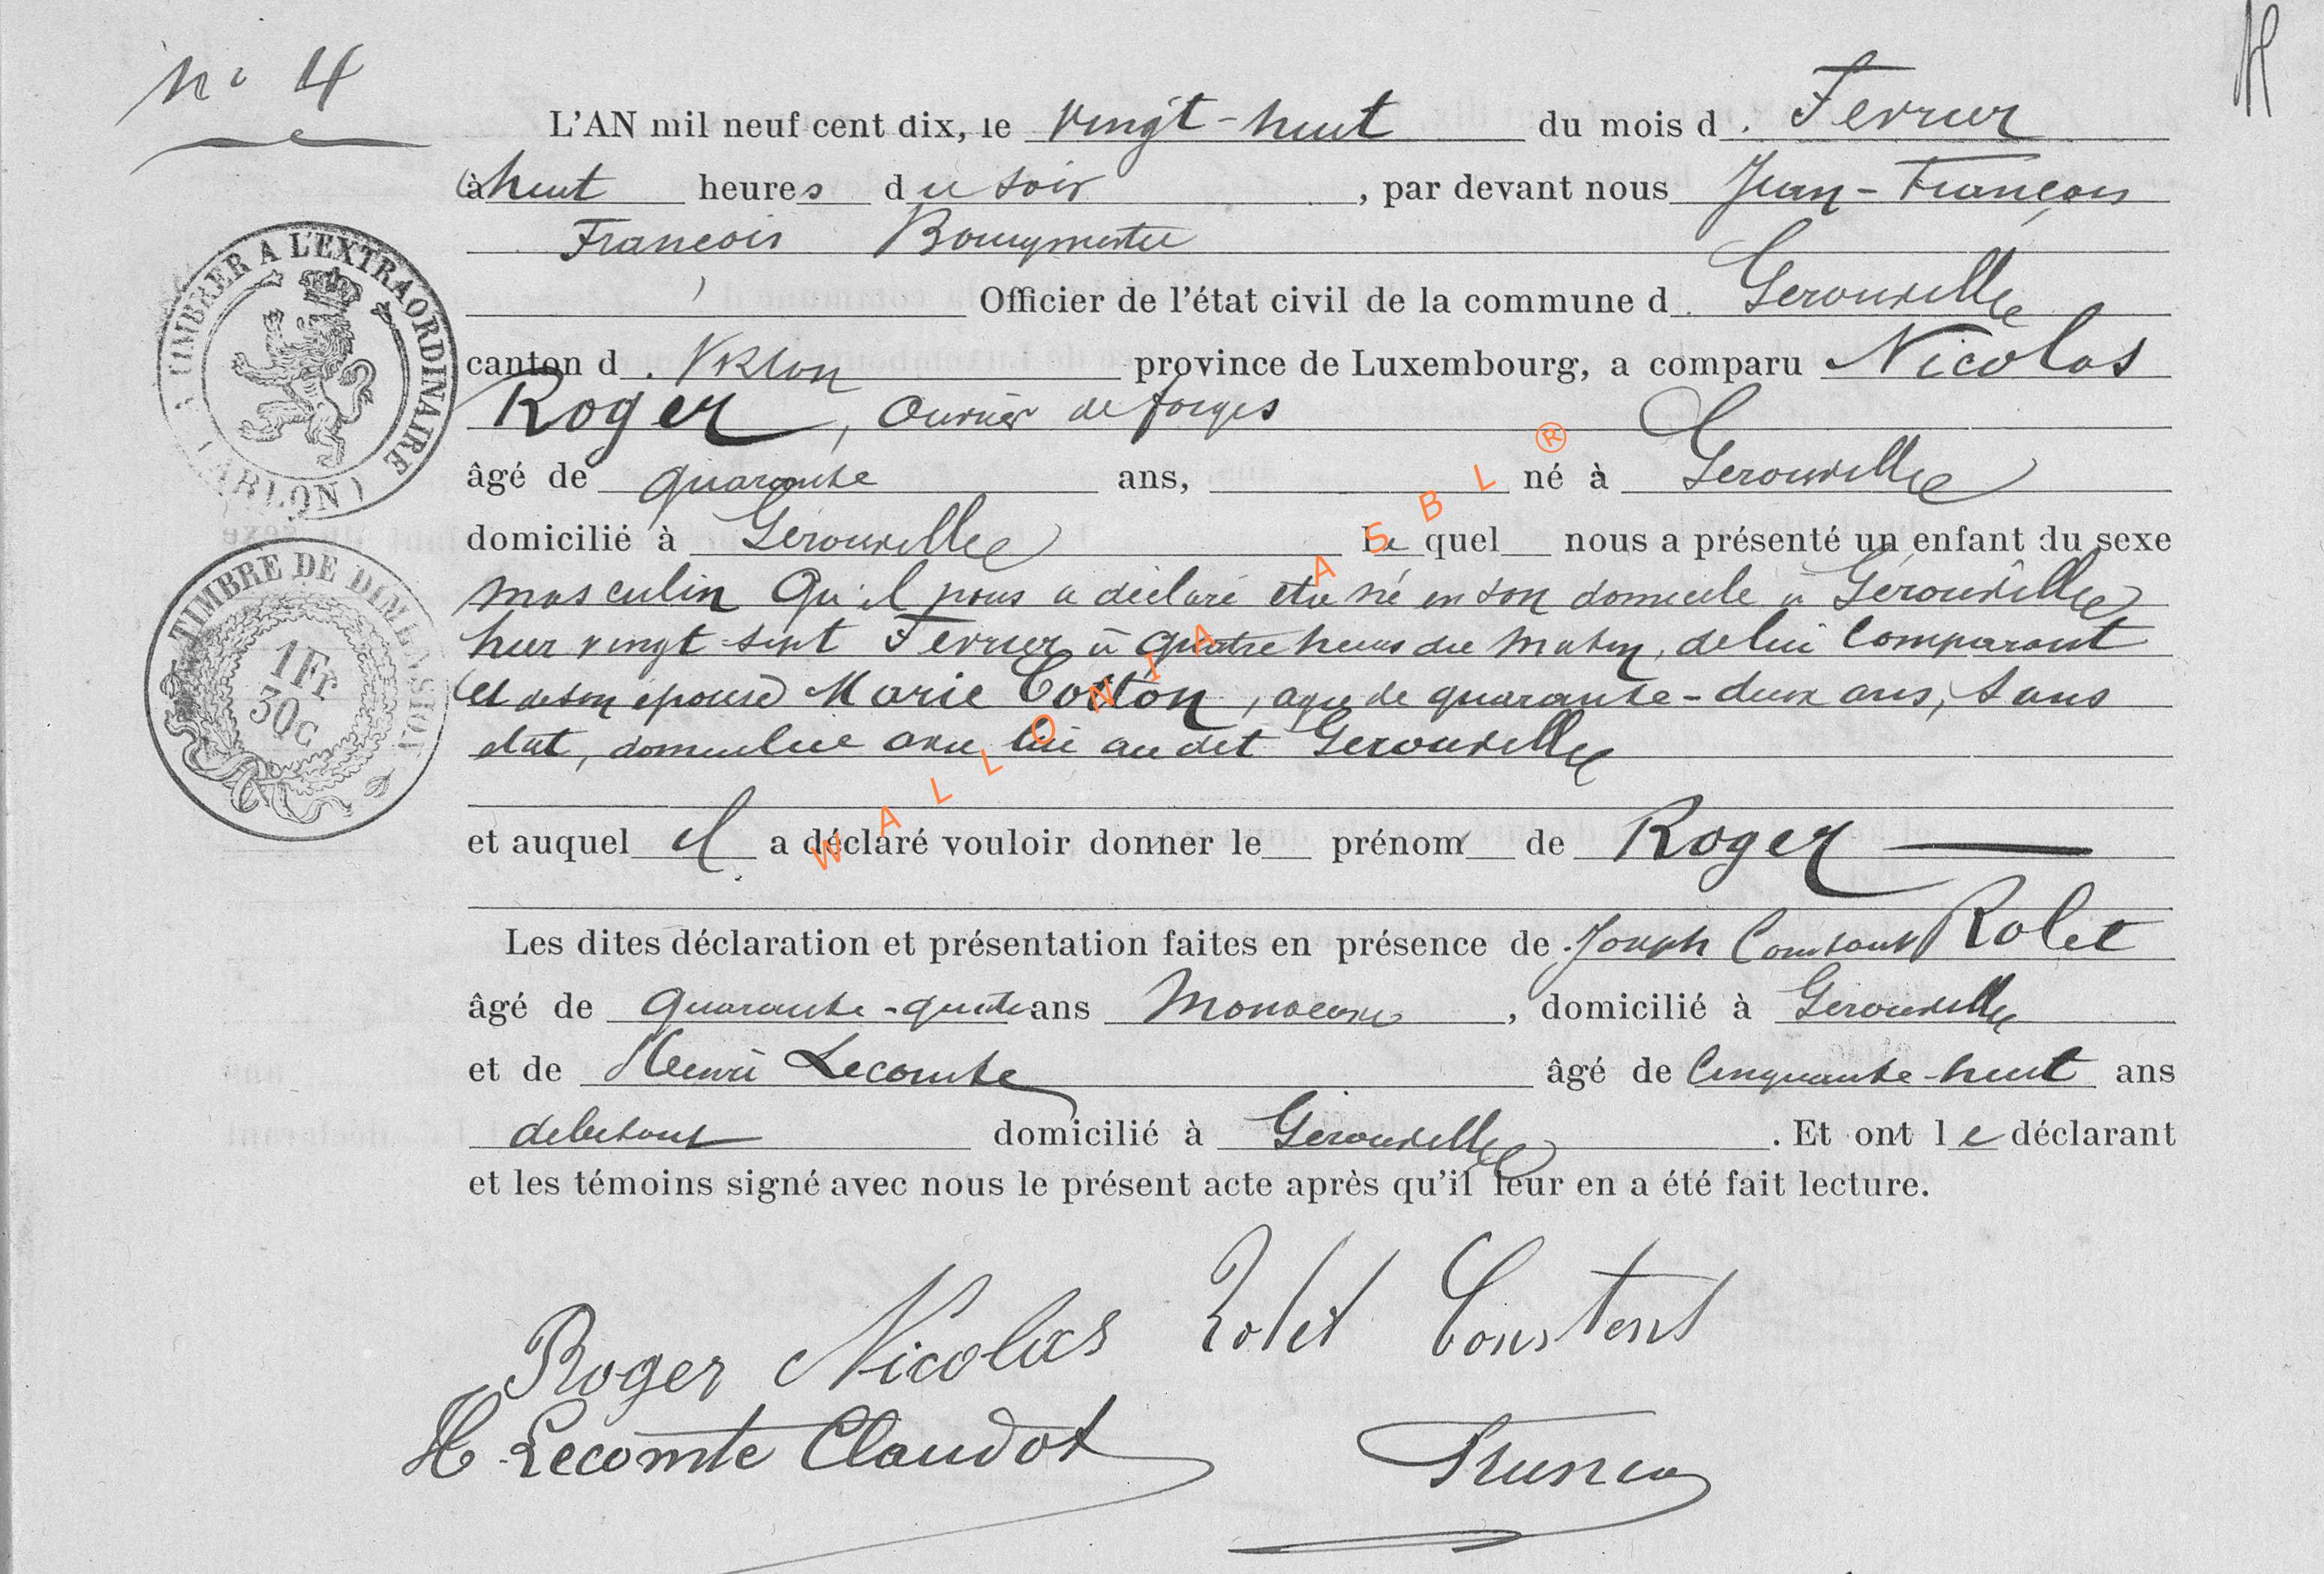 n° 4
L'AN mil neuf cent dix, le vingt-huit du mois d. Fevrier
à huit heures du soir, par devant nous Jean-François
François Bourgmestre
Officier de l'état civil de la commune d. Gerouville
canton d. Virton province de Luxembourg, a comparu Nicolas
Roger, ouvrier de forges
âgé de quarante ans, né à Gerouville
domicilié à Gérouville Le quel nous a présenté un enfant du sexe
masculin Qu'il nous a déclaré être né en son domicile à Gérouville
hier vingt-sept Fevrier à quatre heures du matin, de lui Comparant
et de son épouse Marie Colton, agée de quarante-deux ans, sans
état, domiciliée avec lui au dit Gerouville
et auquel il a déclaré vouloir donner le prénom de Roger
Les dites déclaration et présentation faites en présence de Joseph Constant Rolet
âgé de quarante-quatre ans Manoeuvre, domicilié à Gerouville
et de Henri Lecomte âgé de Cinquante-huit ans
debitant domicilié à Gérouville. Et ont le déclarant
et les témoins signé avec nous le présent acte après qu'il leur en a été fait lecture.
Roger Nicolas Rolet Constent
H. Lecomte Claudot
A TIMBRER A L'EXTRAORDINAIRE
(ARLON)
TIMBRE DE DIMENSION
1Fr
30c
WALLONIA ASBL ®